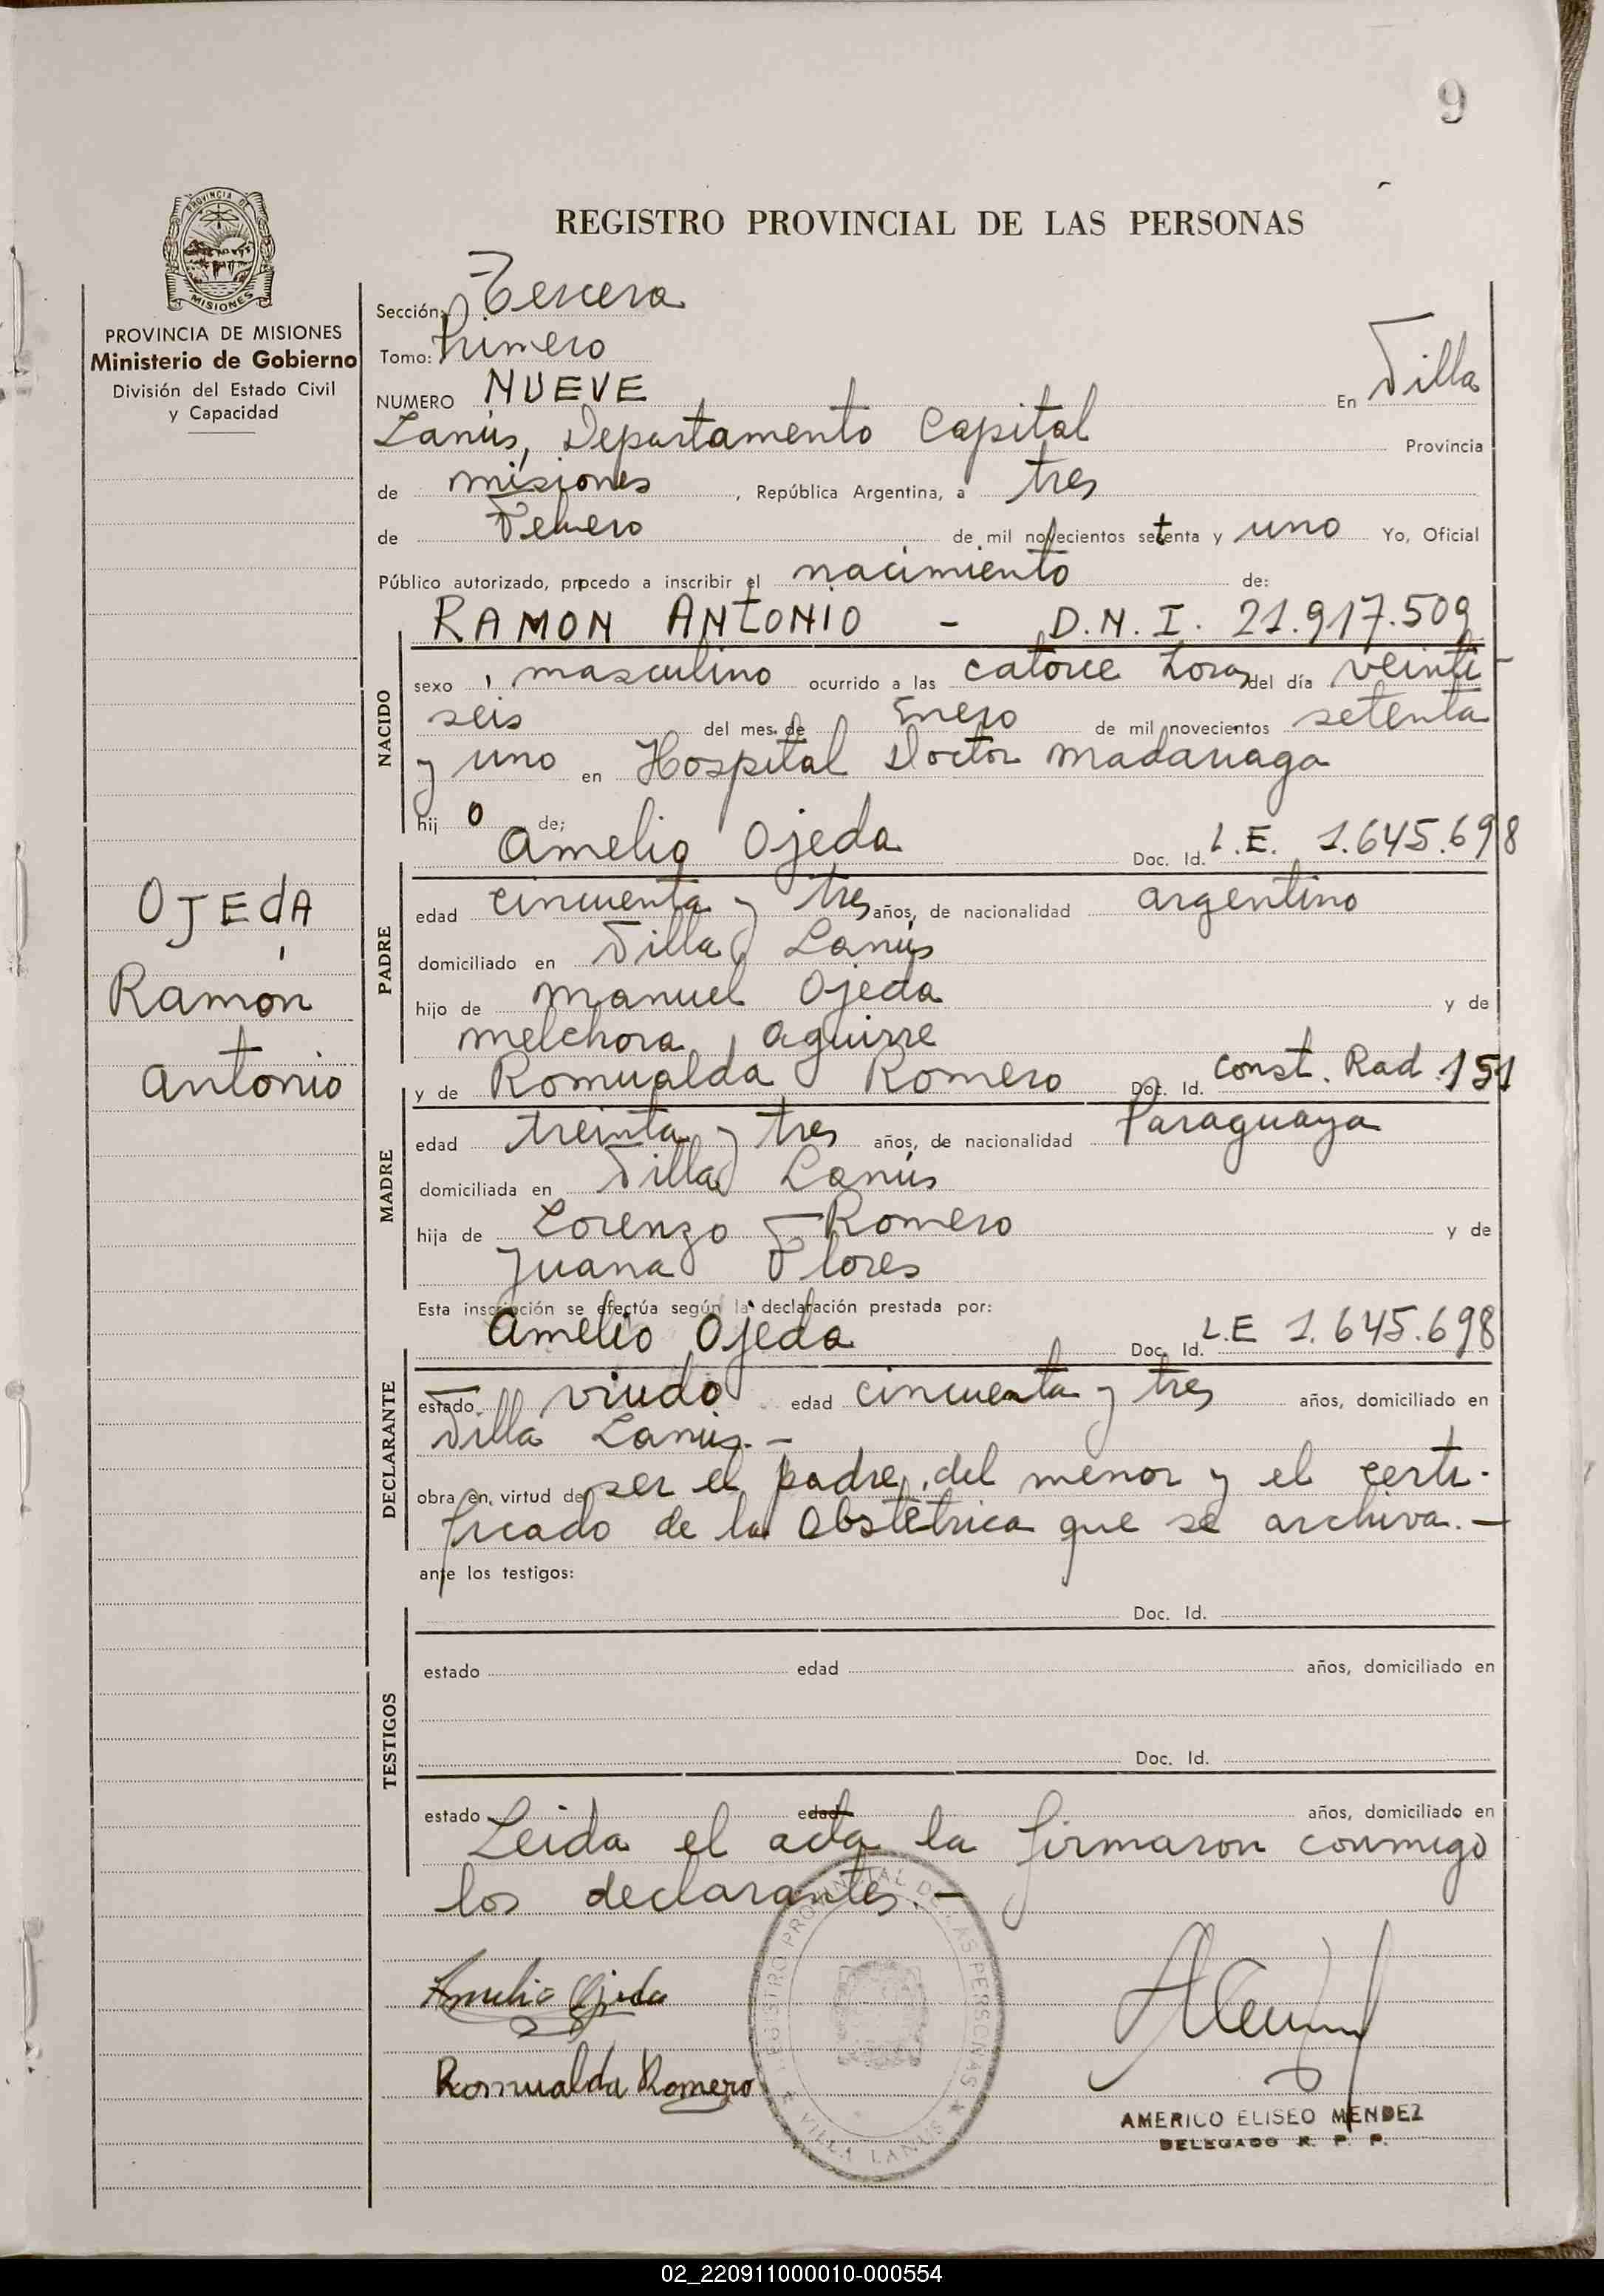 9
PROVINCIA DE
MISIONES
PROVINCIA DE MISIONES
Ministerio de Gobierno
División del Estado Civil
y Capacidad
OJEDA
Ramón
Antonio
REGISTRO PROVINCIAL DE LAS PERSONAS
Sección: Tercera
Tomo: Primero
NUMERO NUEVE En Villa
Lanús, Departamento Capital Provincia
de misiones, República Argentina, a tres
de Febrero de mil novecientos setenta y uno Yo, Oficial
Público autorizado, procedo a inscribir el nacimiento de:
RAMON ANTONIO - D.N.I. 21.917.509
NACIDO
sexo masculino ocurrido a las catorce horas del día veinti-
seis del mes de Enero de mil novecientos setenta
y uno en Hospital Doctor Madariaga
hijo de:
Amelio Ojeda Doc. Id. L.E. 1.645.698
PADRE
edad cincuenta y tres años, de nacionalidad argentino
domiciliado en Villa Lanús
hijo de Manuel Ojeda y de
Melchora Aguirre
y de Romualda Romero Doc. Id. Const. Rad. 151
MADRE
edad treinta y tres años, de nacionalidad Paraguaya
domiciliada en Villa Lanús
hija de Lorenzo Romero y de
Juana Flores
Esta inscripción se efectúa según la declaración prestada por:
Amelio Ojeda Doc. Id. L.E 1.645.698
DECLARANTE
estado viudo edad cincuenta y tres años, domiciliado en
Villa Lanús.-
obra en virtud de ser el padre del menor y el certi-
ficado de la Obstétrica que se archiva.-
ante los testigos:
Doc. Id.
TESTIGOS
estado edad años, domiciliado en
Doc. Id.
estado edad años, domiciliado en
Leida el acta la firmaron conmigo
los declarantes.-
Amelio Ojeda
Romualda Romero
REGISTRO PROVINCIAL DE LAS PERSONAS
VILLA LANUS
AMERICO ELISEO MENDEZ
DELEGADO R. P. P.
02_220911000010-000554